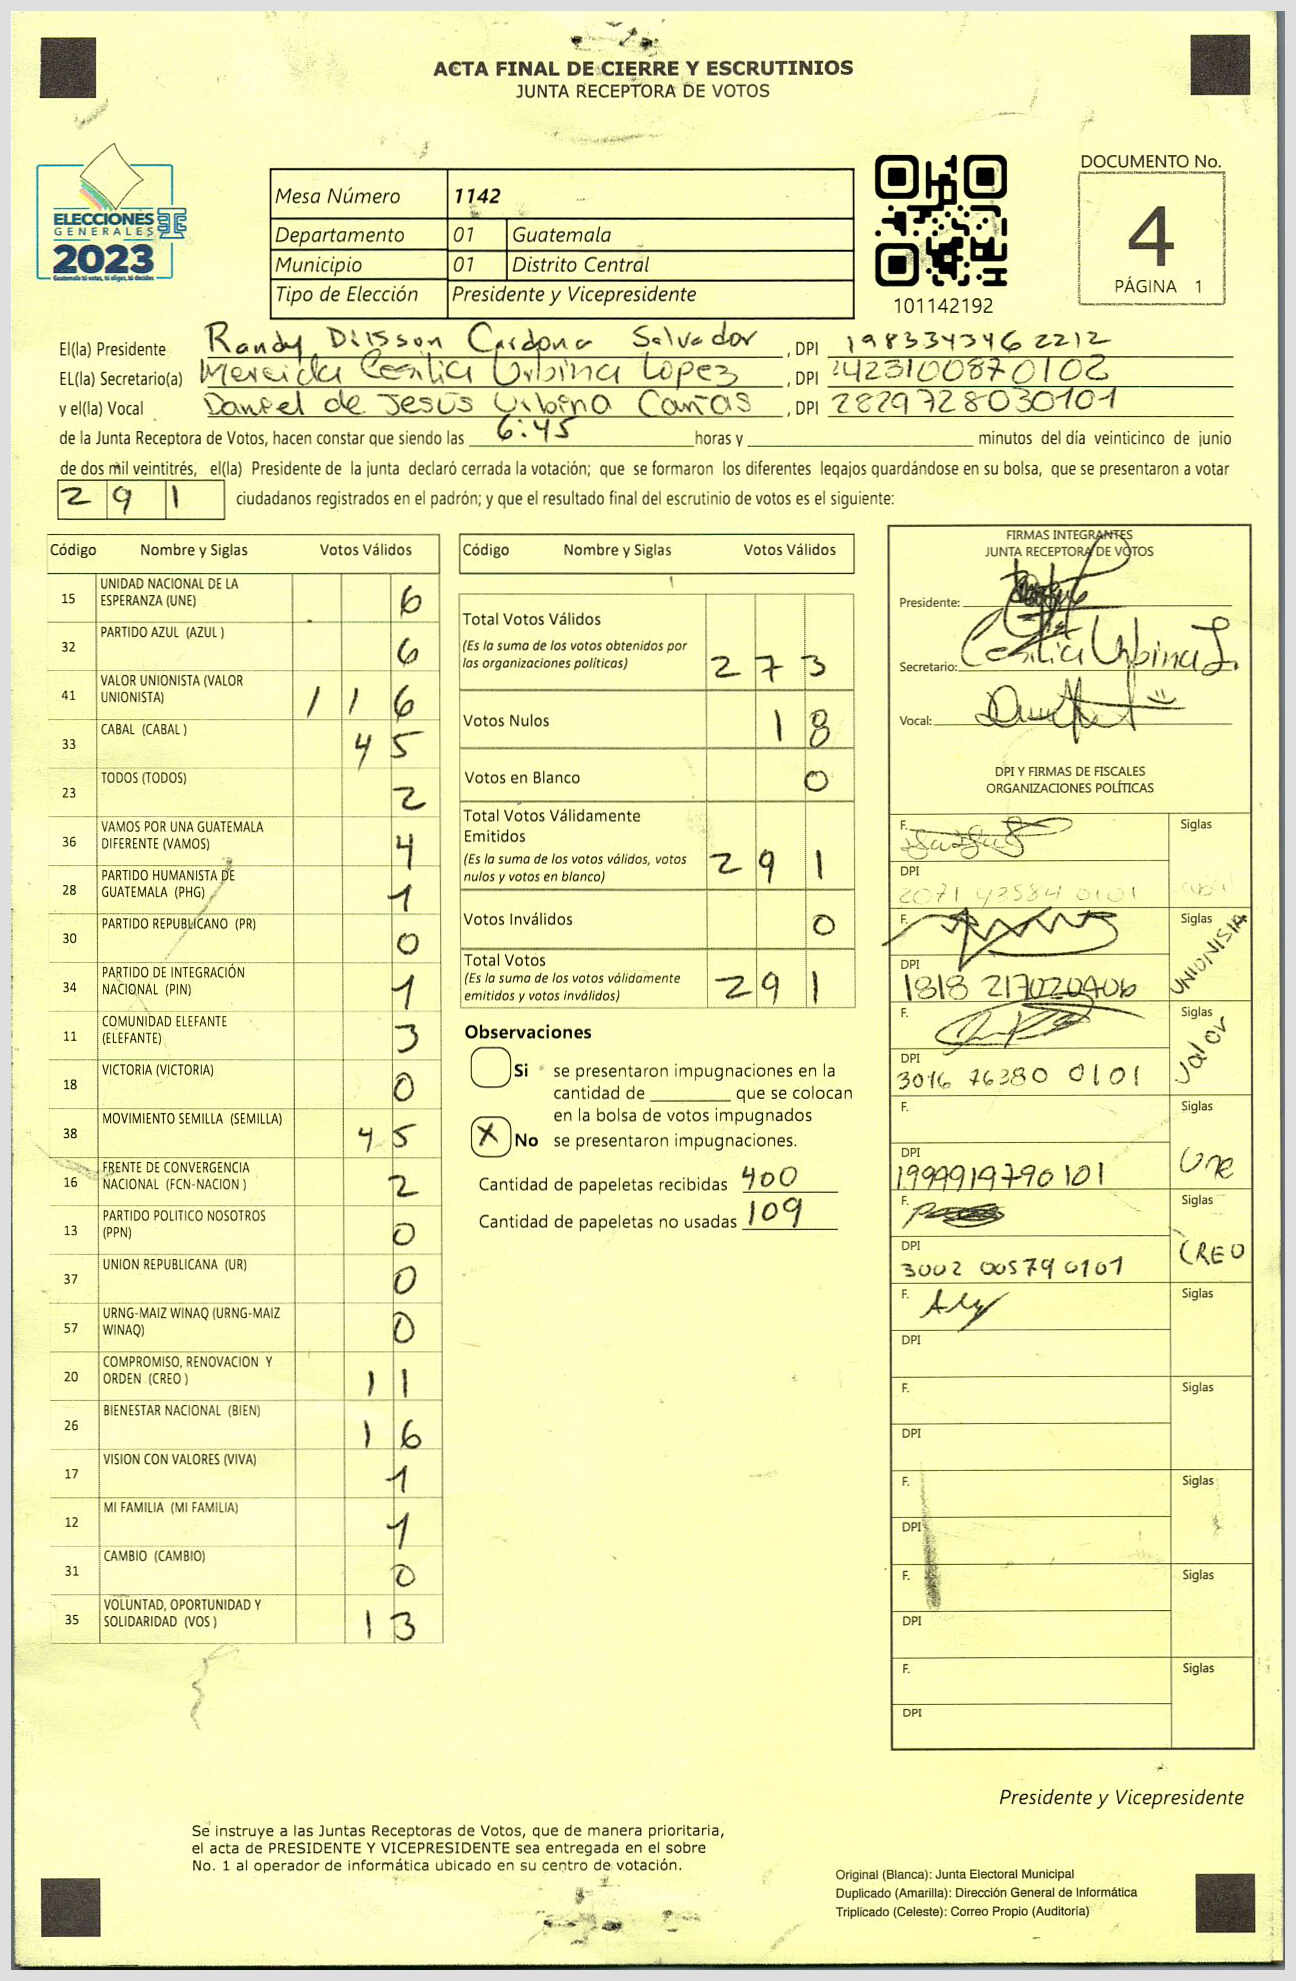 ACTA FINAL DE CIERRE Y ESCRUTINIOS
JUNTA RECEPTORA DE VOTOS
ELECCIONES
GENERALES
2023
Mesa Número 1142
Departamento 01 Guatemala
Municipio 01 Distrito Central
Tipo de Elección Presidente y Vicepresidente
101142192
DOCUMENTO No.
4
PÁGINA 1
El(la) Presidente Randy Dilsson Cardona Salvador , DPI 1983343462212
EL(la) Secretario(a) Cesilia Urbina Lopez , DPI 2423100870102
y el(la) Vocal Daniel de Jesús Urbina Cañas , DPI 2829728030101
de la Junta Receptora de Votos, hacen constar que siendo las 6:45 horas y minutos del día veinticinco de junio
de dos mil veintitrés, el(la) Presidente de la junta declaró cerrada la votación; que se formaron los diferentes legajos guardándose en su bolsa, que se presentaron a votar
291 ciudadanos registrados en el padrón; y que el resultado final del escrutinio de votos es el siguiente:
Código Nombre y Siglas Votos Válidos
15 UNIDAD NACIONAL DE LA
ESPERANZA (UNE) 6
32 PARTIDO AZUL (AZUL ) 6
41 VALOR UNIONISTA (VALOR
UNIONISTA) 116
33 CABAL (CABAL ) 45
23 TODOS (TODOS) 2
36 VAMOS POR UNA GUATEMALA
DIFERENTE (VAMOS) 4
28 PARTIDO HUMANISTA DE
GUATEMALA (PHG) 1
30 PARTIDO REPUBLICANO (PR) 0
34 PARTIDO DE INTEGRACIÓN
NACIONAL (PIN) 1
11 COMUNIDAD ELEFANTE
(ELEFANTE) 3
18 VICTORIA (VICTORIA) 0
38 MOVIMIENTO SEMILLA (SEMILLA) 45
16 FRENTE DE CONVERGENCIA
NACIONAL (FCN-NACION ) 2
13 PARTIDO POLITICO NOSOTROS
(PPN) 0
37 UNION REPUBLICANA (UR) 0
57 URNG-MAIZ WINAQ (URNG-MAIZ
WINAQ) 0
20 COMPROMISO, RENOVACION Y
ORDEN (CREO ) 11
26 BIENESTAR NACIONAL (BIEN) 16
17 VISION CON VALORES (VIVA) 1
12 MI FAMILIA (MI FAMILIA) 1
31 CAMBIO (CAMBIO) 0
35 VOLUNTAD, OPORTUNIDAD Y
SOLIDARIDAD (VOS ) 13
Código Nombre y Siglas Votos Válidos
Total Votos Válidos
(Es la suma de los votos obtenidos por
las organizaciones políticas) 273
Votos Nulos 18
Votos en Blanco 0
Total Votos Válidamente
Emitidos
(Es la suma de los votos válidos, votos
nulos y votos en blanco) 291
Votos Inválidos 0
Total Votos
(Es la suma de los votos válidamente
emitidos y votos inválidos) 291
Observaciones
Si se presentaron impugnaciones en la
cantidad de que se colocan
en la bolsa de votos impugnados
X No se presentaron impugnaciones.
Cantidad de papeletas recibidas 400
Cantidad de papeletas no usadas 109
FIRMAS INTEGRANTES
JUNTA RECEPTORA DE VOTOS
Presidente:
Secretario: Cesilia Urbina L.
Vocal:
DPI Y FIRMAS DE FISCALES
ORGANIZACIONES POLÍTICAS
F. Siglas
DPI
2071 43584 0101
F. Siglas UNIONISTA
DPI
1818 217020406
F. Siglas Valor
DPI
3016 76380 0101
F. Siglas
DPI Une
1999919790101
F. Siglas
DPI CREO
3002 00579 0101
F. Siglas
DPI
F. Siglas
DPI
F. Siglas
DPI
F. Siglas
DPI
F. Siglas
DPI
Presidente y Vicepresidente
Se instruye a las Juntas Receptoras de Votos, que de manera prioritaria,
el acta de PRESIDENTE Y VICEPRESIDENTE sea entregada en el sobre
No. 1 al operador de informática ubicado en su centro de votación.
Original (Blanca): Junta Electoral Municipal
Duplicado (Amarilla): Dirección General de Informática
Triplicado (Celeste): Correo Propio (Auditoría)